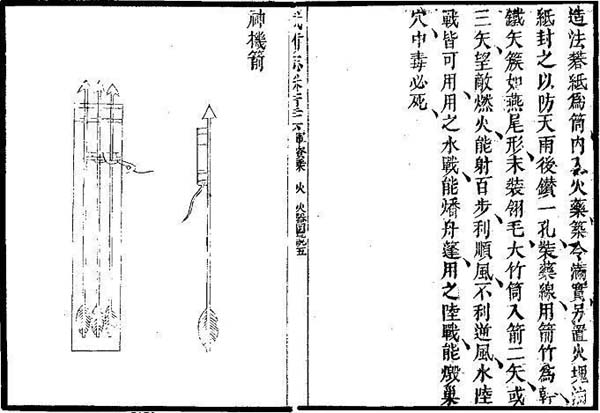 造法捲紙爲筒內入火藥築令滿實另置火塊油
紙封之以防天雨後鑽一孔裝藥線用箭竹爲幹
鐵矢簇如燕尾形末裝翎毛大竹筒入箭二矢或
三矢望敵燃火能射百步利順風不利逆風水陸
戰皆可用用之水戰能燔舟蓬用之陸戰能燬巢
穴中毒必死
武備志 軍資乘 火 火器圖說五
神機箭